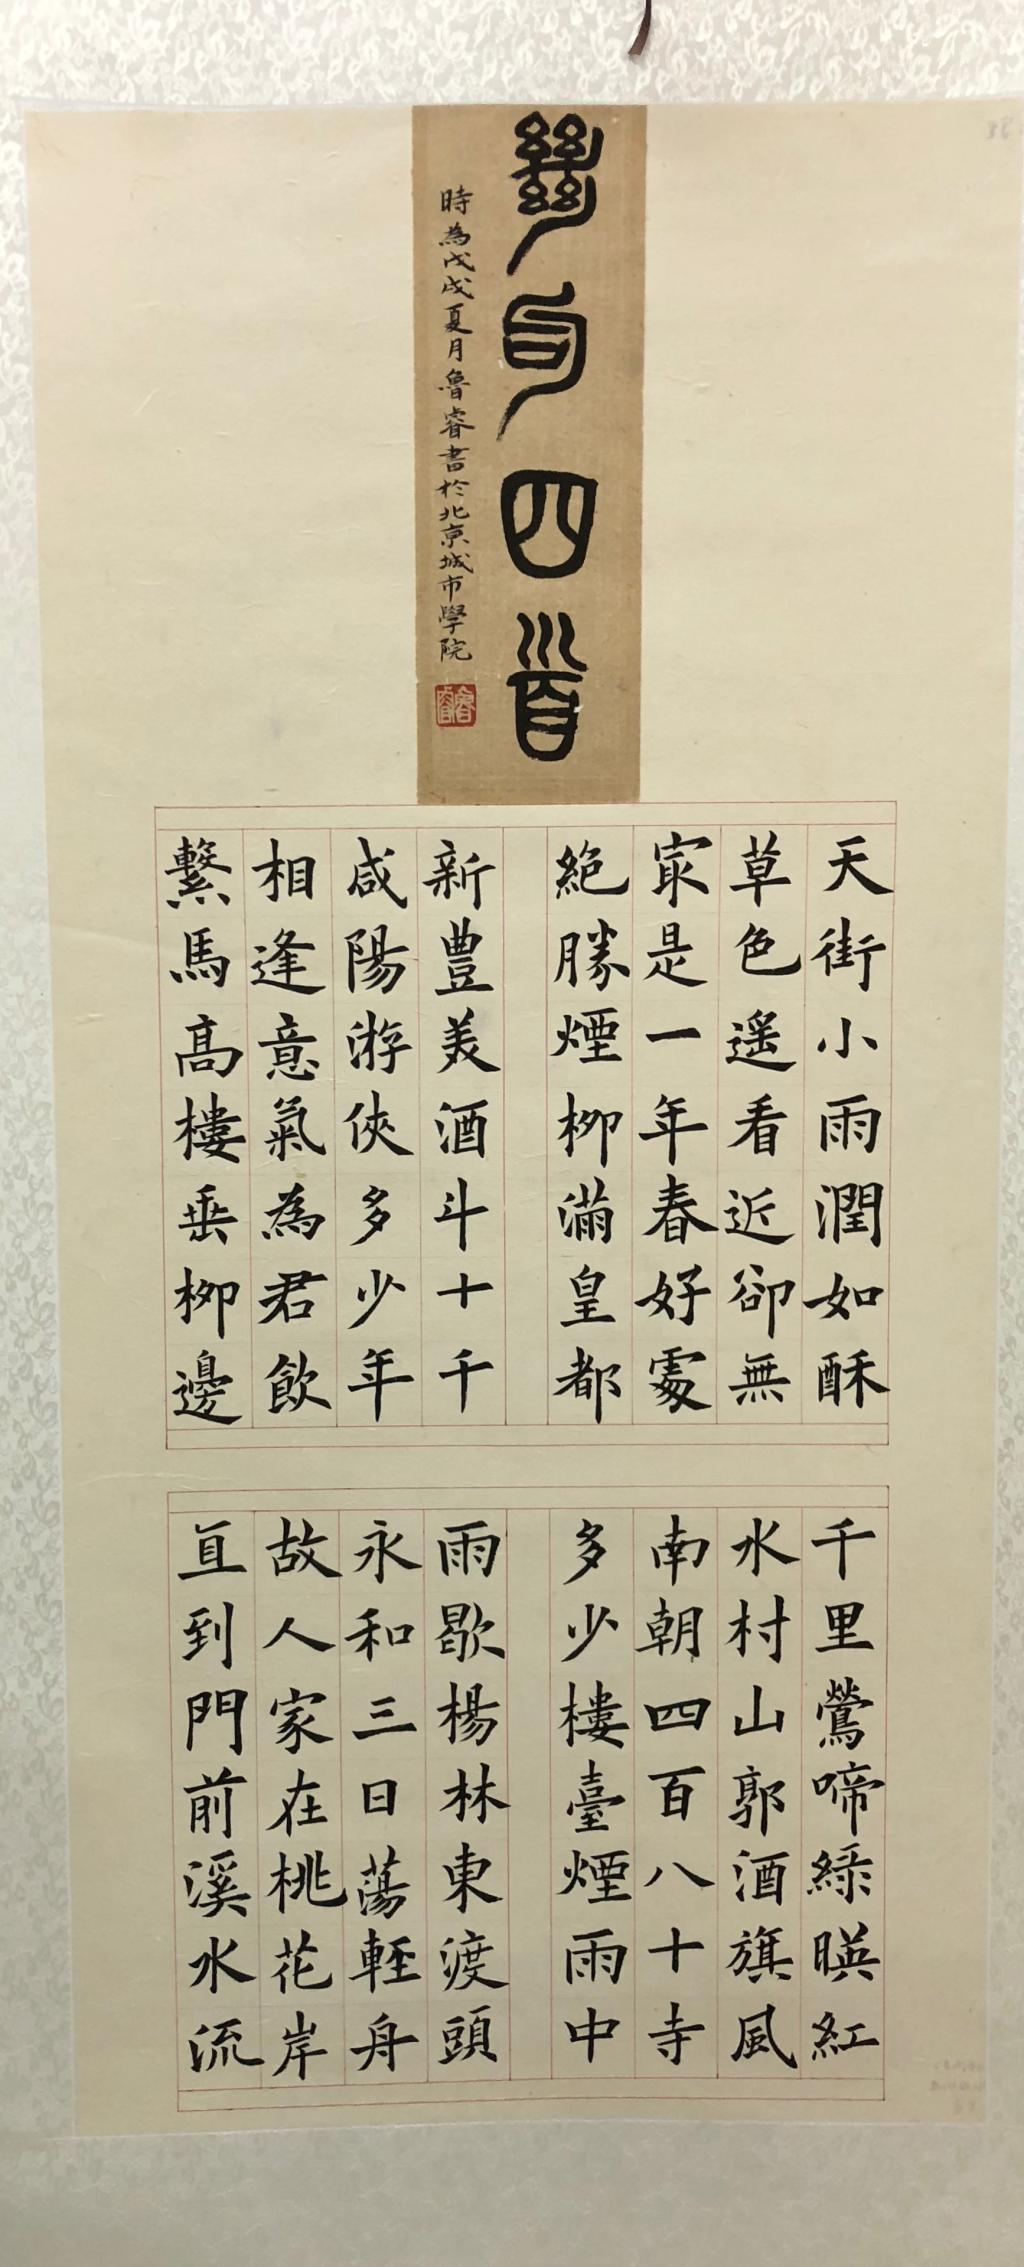 絕句四首
時為戊戌夏月魯睿書於北京城市學院
魯睿
天街小雨潤如酥
草色遙看近卻無
冣是一年春好處
絕勝煙柳滿皇都
新豐美酒斗十千
咸陽游俠多少年
相逢意氣為君飲
繫馬高樓垂柳邊
千里鶯啼綠暎紅
水村山郭酒旗風
南朝四百八十寺
多少樓臺煙雨中
雨歇楊林東渡頭
永和三日蕩輕舟
故人家在桃花岸
直到門前溪水流